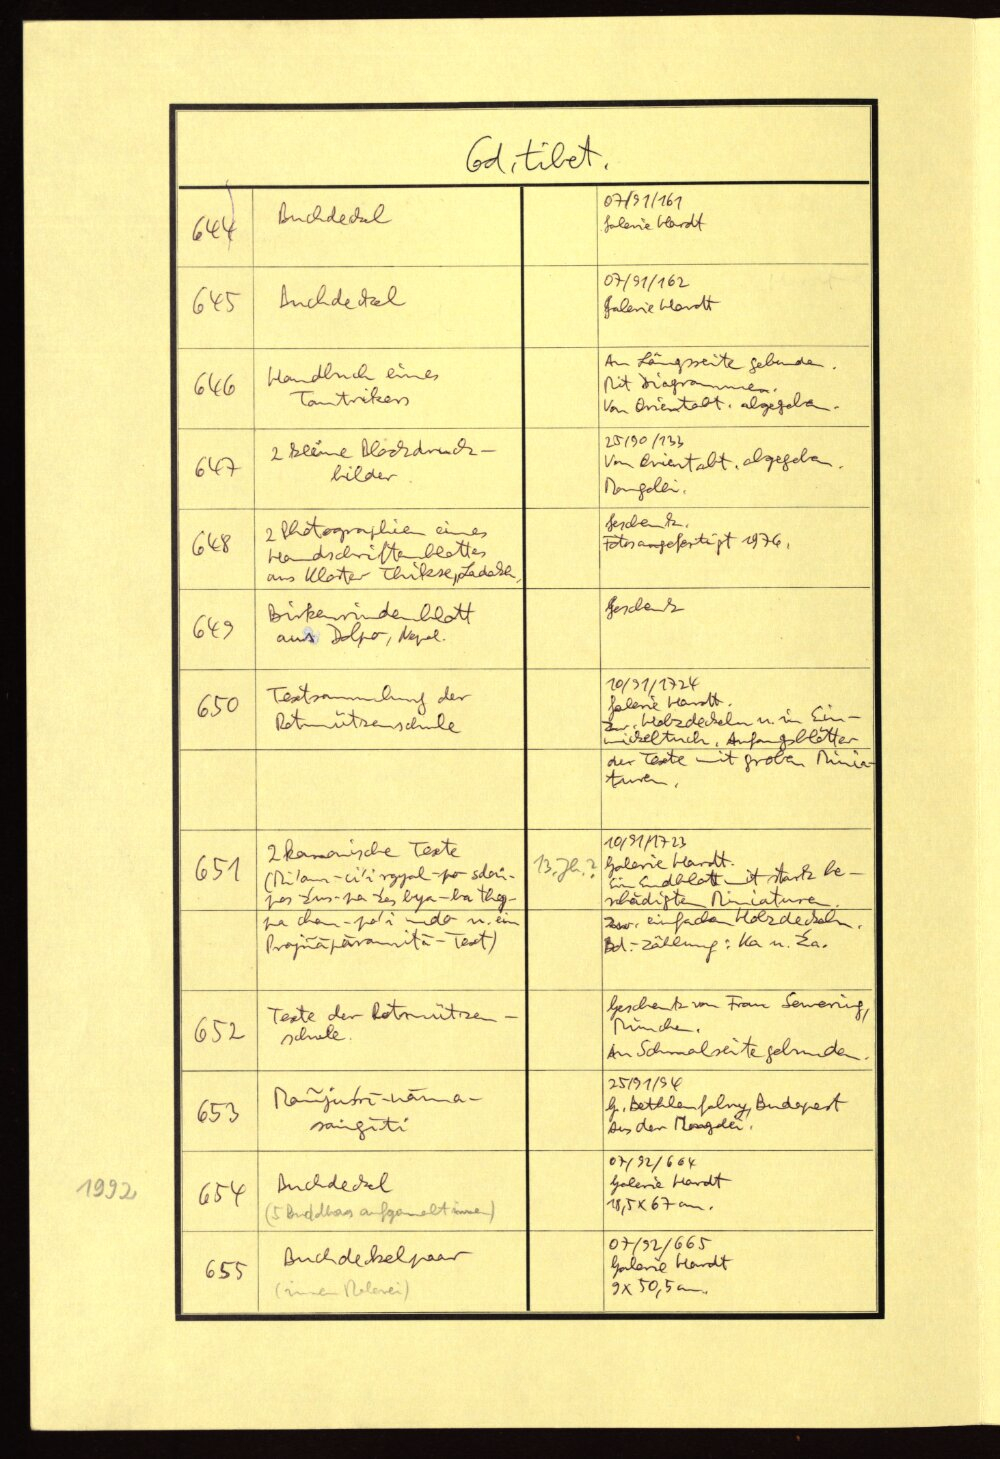 Cod. tibet.
644
Buchdeckel
07/91/161
Galerie Hardt
645
Buchdeckel
07/91/162
Galerie Hardt
646
Handbuch eines
Tantrikers
An Längsseite gebunden.
Mit Diagrammen.
Von Orientabt. abgegeben.
647
2 kleine Blockdruck-
bilder.
25/90/133
Von Orientabt. abgegeben.
Mongolei.
648
2 Photographien eines
Handschriftenblattes
aus Kloster Thikse, Ladakh.
Geschenk.
Fotos angefertigt 1976.
649
Birkenrindenblatt
aus Dolpo, Nepal.
Geschenk
650
Textsammlung der
Rotmützenschule
10/91/1724
Galerie Hardt.
Zw. Holzdeckeln u. in Ein-
wickeltuch. Anfangsblätter
der Texte mit groben Minia-
turen.
651
2 kanonische Texte
(Mi'am-ci'i rgyal-po sdoṅ-
pos żus-pa żes bya-ba theg-
pa chen-po'i mdo u. ein
Prajñāpāramitā-Text)
13. Jh.?
10/91/1723
Galerie Hardt.
Ein Endblatt mit stark be-
schädigten Miniaturen.
Zw. einfachen Holzdeckeln.
Bd.-Zählung: Ka u. Źa.
652
Texte der Rotmützen-
schule.
Geschenk von Frau Sewering,
München.
An Schmalseite gebunden.
653
Mañjuśrī-nāma-
saṅgīti
25/91/94
G. Bethlenfalvy, Budapest
Aus der Mongolei.
1992
654
Buchdeckel
(5 Buddhas aufgemalt innen)
07/92/664
Galerie Hardt
18,5 x 67 cm.
655
Buchdeckelpaar
(innen Malerei)
07/92/665
Galerie Hardt
9 x 50,5 cm.